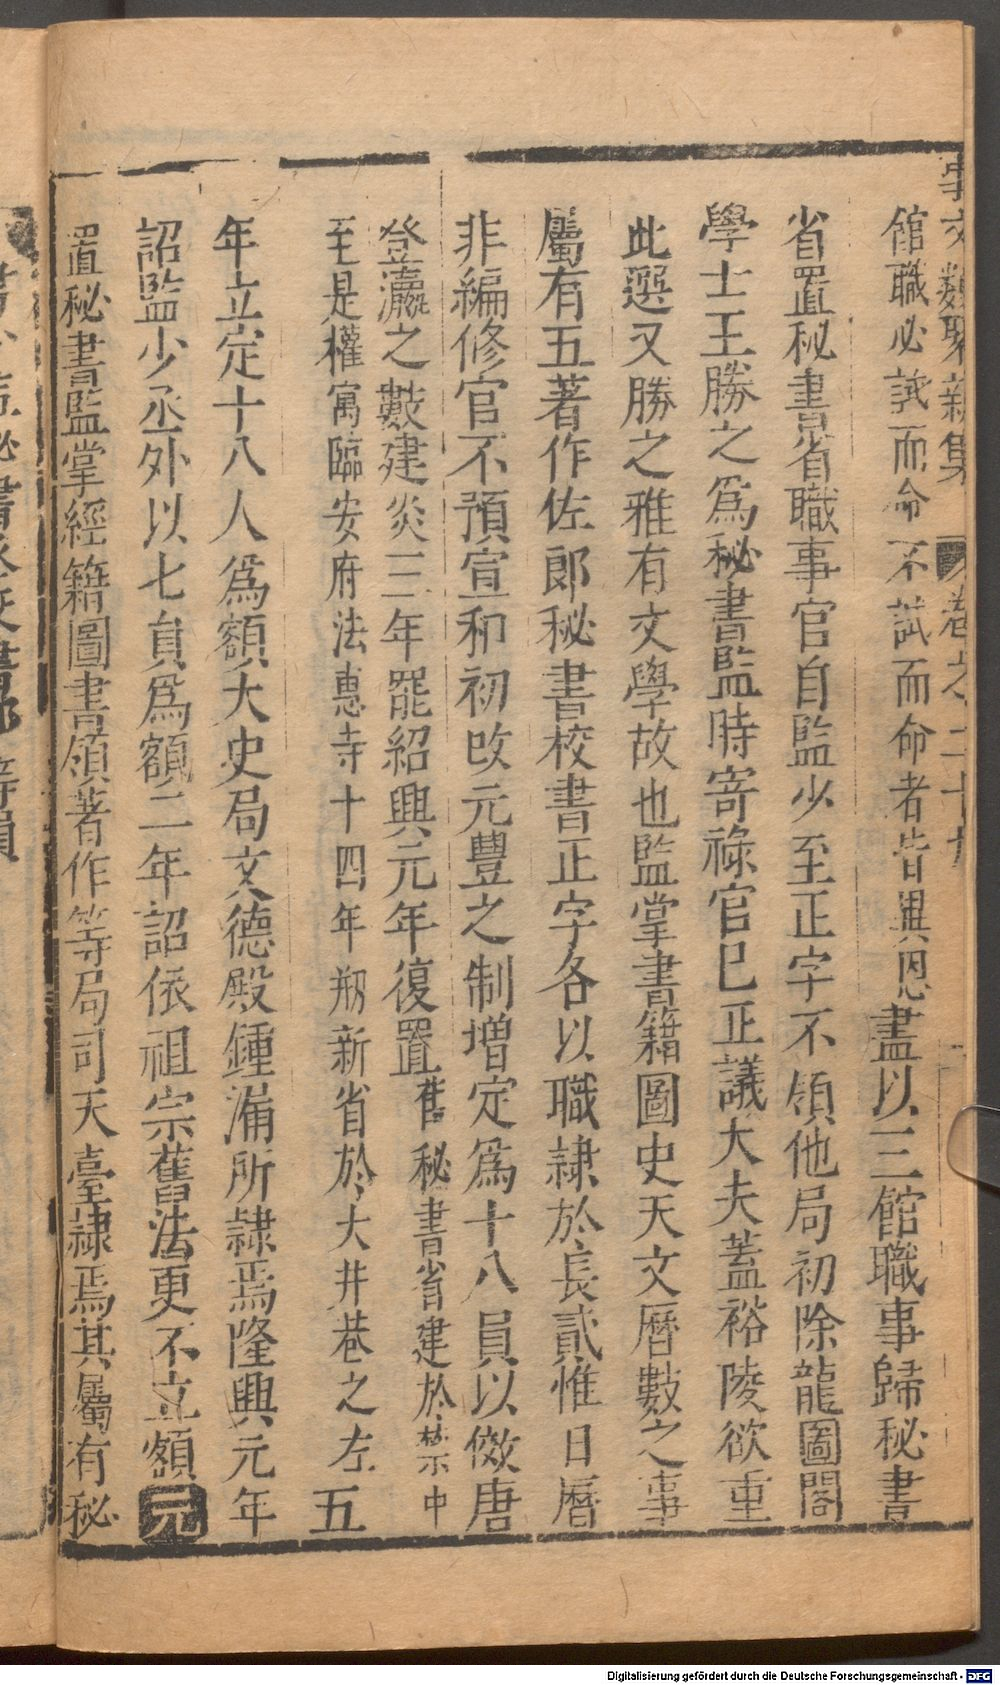 事文類聚新集 卷之二十九
館職必試而命不試而命者皆異恩盡以三館職事歸秘書
省置秘書省職事官自監少至正字不領他局初除龍圖閣
學士王勝之爲秘書監時寄祿官已正議大夫蓋裕陵欲重
此選又勝之雅有文學故也監掌書籍圖史天文曆數之事
屬有五著作佐郎秘書校書正字各以職隷於長貳惟日曆
非編修官不預宣和初改元豐之制增定爲十八員以倣唐
登瀛之數建炎三年罷紹興元年復置舊秘書省建於禁中
至是權寓臨安府法惠寺十四年剏新省於大井巷之左五
年立定十八人爲額大史局文德殿鍾漏所隷焉隆興元年
詔監少丞外以七員爲額二年詔依祖宗舊法更不立額元
置秘書監掌經籍圖書領著作等局司天臺隷焉其屬有秘
Digitalisierung gefördert durch die Deutsche Forschungsgemeinschaft - DFG